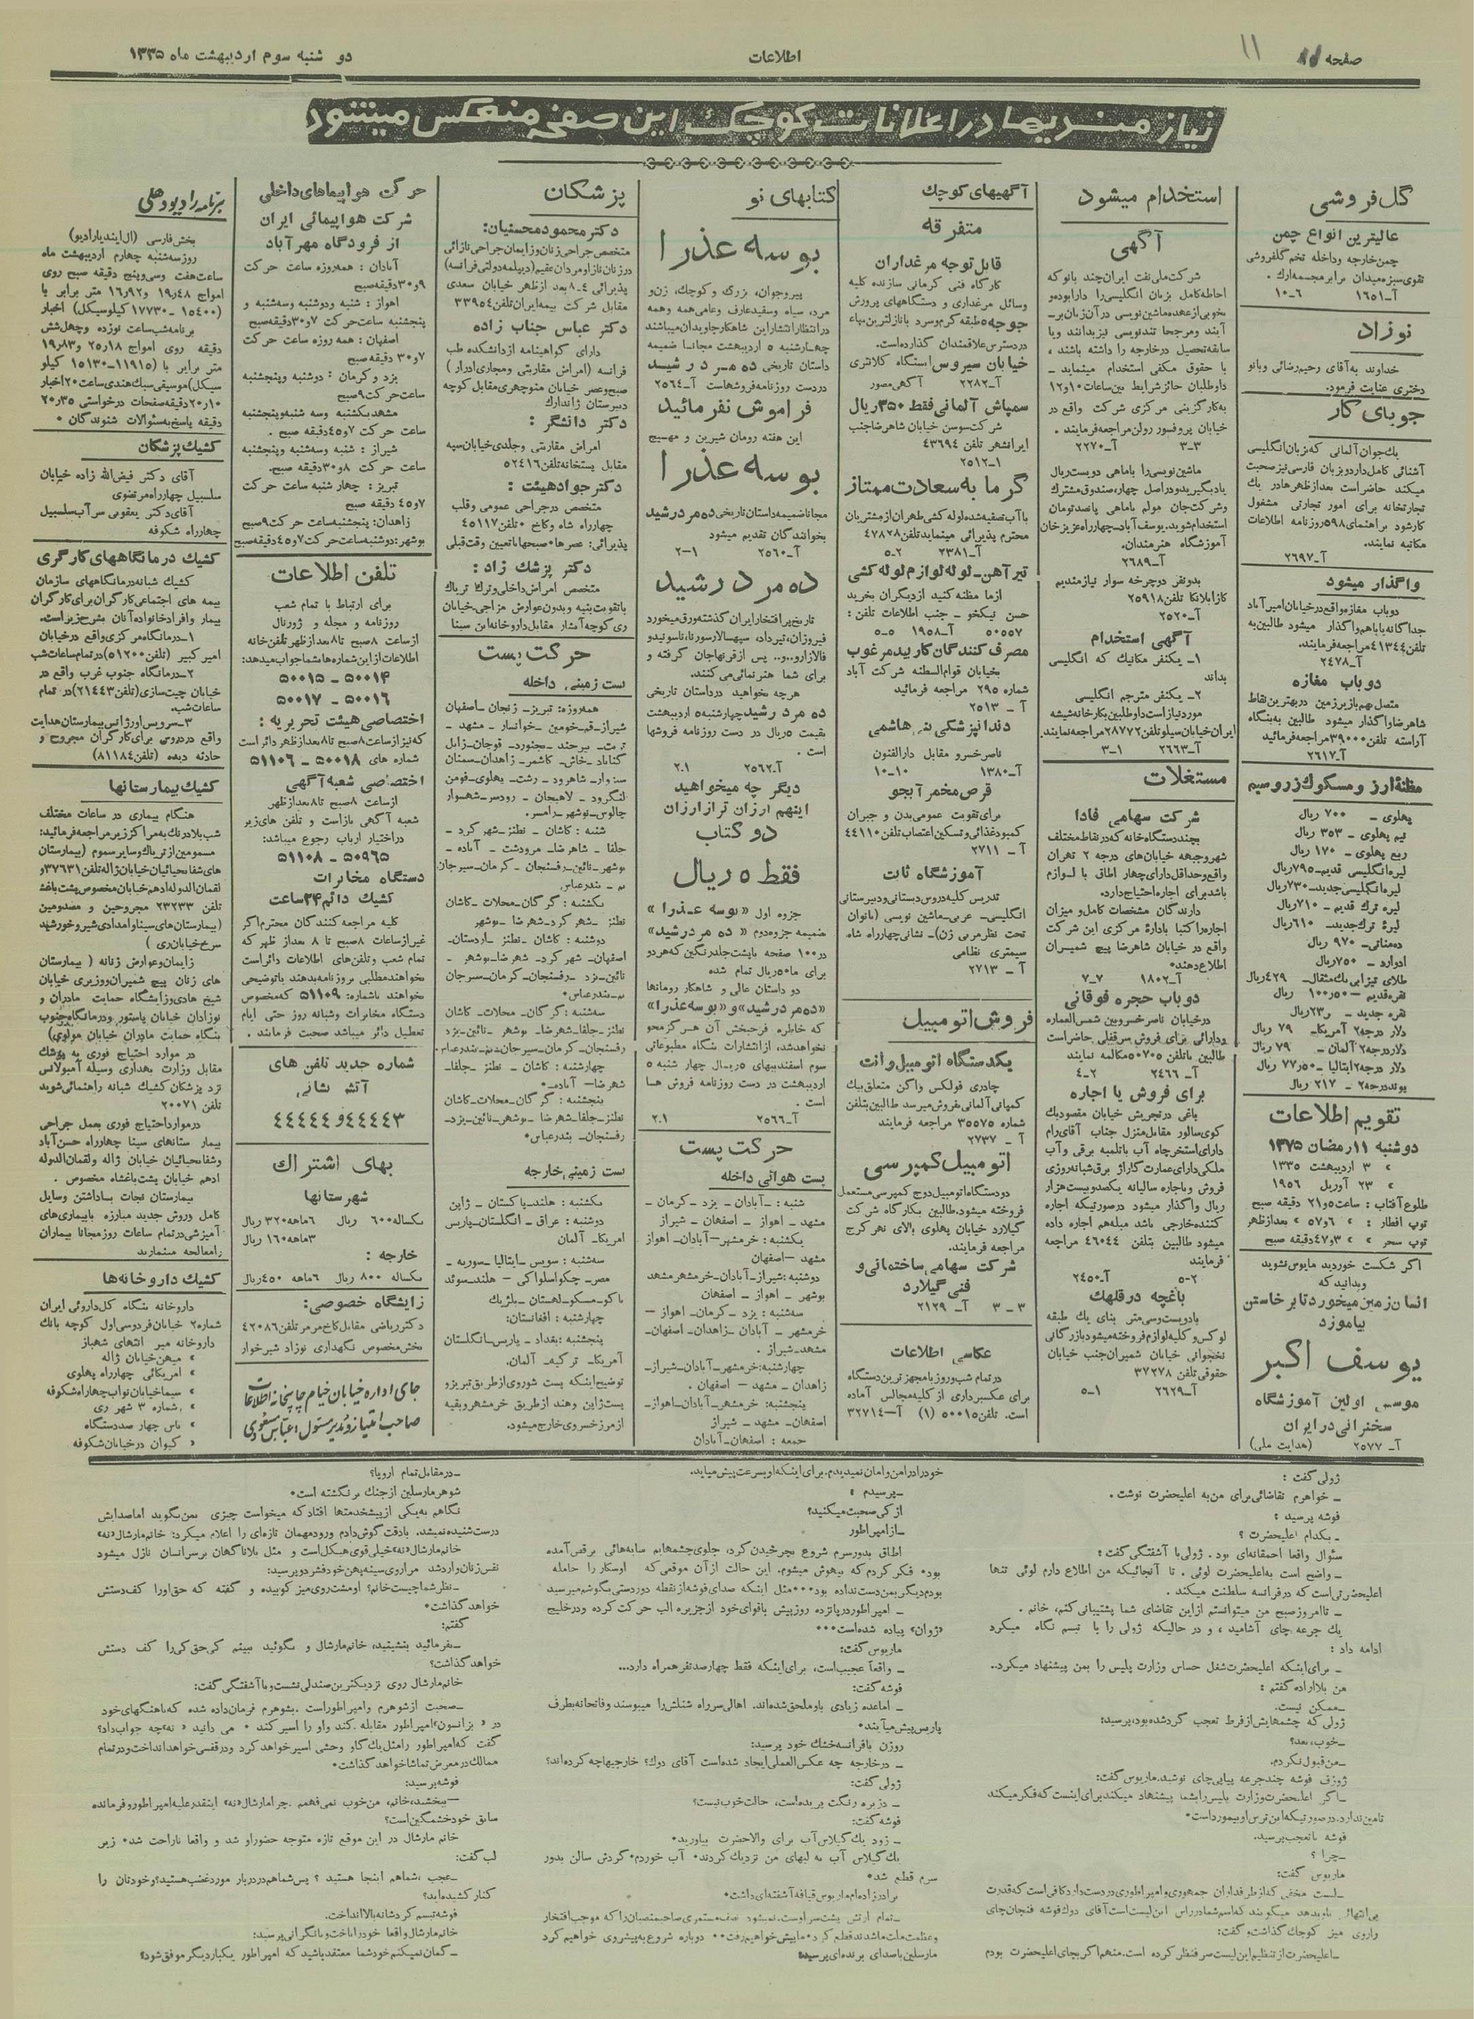 صفحه ۱۱
اطلاعات
دو شنبه سوم اردیبهشت ماه ۱۳۳۵
نیازمندیها در اعلانات کوچک این صفحه منعکس میشود
گل فروشی
عالیترین انواع چمن
چمن خارجه و داخله تخم گلفروشی
آ-۱۶۵۱ ۶-۱۰
نوزاد
خداوند به آقای رحیم رضائی و بانو
دختری عنایت فرمود.
جویای کار
یك جوان آلمانی که بزبان انگلیسی
آشنائی کامل دارد و بزبان فارسی نیز صحبت
میکند حاضر است بعد از ظهرها در یك
تجارتخانه برای امور تجارتی مشغول
کار شود براهنمای ۵۹۸ روزنامه اطلاعات
مکاتبه نمایند.
آ-۲۶۹۷
واگذار میشود
دو باب مغازه واقع در خیابان امیرآباد
جداگانه یا با هم واگذار میشود طالبین به
تلفن ۴۱۳۴۴ مراجعه فرمایند.
آ-۲۴۷۸
دو باب مغازه
متصل بهم با زیرزمین در بهترین نقاط
شاهرضا واگذار میشود طالبین به بنگاه
آراسته تلفن ۳۹۰۰۰ مراجعه فرمائید
آ-۲۶۱۷
مظنه ارز و مسکوك زر و سیم
پهلوی - ۷۰۰ ریال
نیم پهلوی - ۳۵۳ ریال
ربع پهلوی - ۱۷۰ ریال
لیره انگلیسی قدیم-۷۹۵ ریال
لیره انگلیسی جدید-۷۳۰ ریال
لیره ترك قدیم-۷۱۰ ریال
لیرهٔ ترك جدید- ۶۱۰ ریال
ده مناتی- ۹۷۰ ریال
ادوارد - ۷۵۰ ریال
طلای تیزابی یك مثقال-۴۲۹ ریال
دلار درجه ۲ آمریکا- ۷۹ ریال
دلار درجه ۲ آلمان- ۷۹ ریال
دلار درجه ۲ ایتالیا -۷۷٫۵۰ ریال
پوند درجه ۲ - ۲۱۷ ریال
تقویم اطلاعات
دوشنبه ۱۱ رمضان ۱۳۷۵
» ۳ اردیبهشت ۱۳۳۵
» ۲۳ آوریل ۱۹۵۶
طلوع آفتاب : ساعت ۵ و ۲۱ دقیقه صبح
توپ افطار : » ۶ و ۵۷ » بعد از ظهر
توپ سحر : » ۳ و ۴۷ دقیقه صبح
اگر شکست خوردید مایوس نشوید
و بدانید که
انسان زمین میخورد تا برخاستن
بیاموزد
یوسف اکبر
موسس اولین آموزشگاه
سخنرانی در ایران
آ- ۲۵۷۷ (هدایت ملی)
استخدام میشود
آگهی
شرکت ملی نفت ایران چند بانو که
احاطه کامل بزبان انگلیسی را دارا بوده و
بخوبی از عهده ماشین نویسی در آن زبان بر
آیند و مرجحا تندنویسی نیز بدانند و یا
سابقه تحصیل در خارجه را داشته باشند ،
با حقوق مکفی استخدام مینماید -
داوطلبان حائز شرایط بین ساعات ۱۰ و ۱۲
به کارگزینی مرکزی شرکت واقع در
خیابان پروفسور رولن مراجعه فرمایند.
۳-۳ آ-۲۲۷۰
ماشین نویسی را باماهی دویست ریال
یاد بگیرید و در اصل چهار، صندوق مشترك
و شرکت جان مولم باماهی پانصد تومان
استخدام شوید. یوسف آباد-چهارراه عزیزخان
آموزشگاه هنرمندان.
آ-۲۶۸۹
بدو نفر دوچرخه سوار نیازمندیم
کازابلانکا تلفن ۲۵۹۱۸
آ-۲۵۲۰
آگهی استخدام
۱- یکنفر مکانیك که انگلیسی
بداند
۲- یکنفر مترجم انگلیسی
مورد نیاز است داوطلبین بکارخانه شیشه
ایران خیابان سیلو تلفن ۲۸۷۷۲ مراجعه نمایند.
آ-۲۶۶۳ ۱-۳
مستغلات
شرکت سهامی فادا
چند دستگاه خانه که در نقاط مختلف
شهر و جبهه خیابان های درجه ۲ تهران
واقع و حداقل دارای چهار اطاق با لوازم
باشد برای اجاره احتیاج دارد.
دارندگان مشخصات کامل و میزان
اجاره را کتبا به اداره مرکزی این شرکت
واقع در خیابان شاهرضا پیچ شمیران
اطلاع دهند.
آ-۱۸۰۲ ۷-۷
دو باب حجره فوقانی
در خیابان ناصر خسرو بین شمس العماره
و دارائی برای فروش سرقفلی حاضر است
طالبین با تلفن ۵۰۷۰۵ مکالمه نمایند
آ- ۲۴۶۶ ۲-۴
برای فروش یا اجاره
باغی در تجریش خیابان مقصود بك
کوی سالور مقابل منزل جناب آقای رام
دارای استخر چاه آب با تلمبه برقی و آب
ملکی دارای عمارت گاراژ برق شبانه روزی
فروش و یا اجاره سالیانه یکصد و بیست هزار
ریال واگذار میشود در صورتیکه اجاره
کننده خارجی باشد مبله هم اجاره داده
میشود طالبین بتلفن ۴۶۰۴۴ مراجعه
فرمایند
۵-۲ آ-۲۴۵۰
باغچه در قلهك
با دویست و سی متر بنای یك طبقه
لوکس و کلیه لوازم فروخته میشود بازرگانی
نخجوانی خیابان شمیران جنب خیابان
حقوقی تلفن ۳۷۲۷۸
آ-۲۶۲۹ ۱-۵
آگهیهای کوچك
متفرقه
قابل توجه مرغداران
کارگاه فنی کرمانی سازنده کلیه
وسائل مرغداری و دستگاههای پرورش
جوجه ۵ طبقه گرم و سرد با نازلترین بهاء
در دسترس علاقمندان گذارده است.
خیابان سیروس ایستگاه کلانتری
آ-۲۲۸۲ آگهی مصور
سمپاش آلمانی فقط ۳۵۰ ریال
شرکت سوسن خیابان شاهرضا جنب
ایرانشهر تلفن ۴۳۶۹۴
آ-۲۵۱۲
گرما به سعادت ممتاز
با آب تصفیه شده لوله کشی طهران از مشتریان
محترم پذیرائی مینماید تلفن ۴۷۸۷۸
آ-۲۳۸۱ ۲-۵
تیرآهن-لوله لوازم لوله کشی
از ما مظنه کنید از دیگران بخرید
حسن نیکخو - جنب اطلاعات تلفن :
۵۰۵۵۷ آ-۱۹۵۸ ۵-۵
مصرف کنندگان کاربید مرغوب
بخیابان قوام السلطنه شرکت آباد
شماره ۲۹۵ مراجعه فرمائید
آ- ۲۵۱۳
دندانپزشکی بنی هاشمی
ناصر خسرو مقابل دارالفنون
آ-۱۳۸۰ ۱۰-۱۰
قرص مخمر آبجو
برای تقویت عمومی بدن و جبران
کمبود غذائی و تسکین اعصاب تلفن ۴۴۱۱۰
آ - ۲۷۱۱
آموزشگاه ثابت
تدریس کلیه دروس دبستانی و دبیرستانی
انگلیسی- عربی-ماشین نویسی (بانوان
تحت نظر مربی زن)-نشانی چهارراه شاه
سیمتری نظامی
آ - ۲۷۱۳
فروش اتومبیل
یکدستگاه اتومبیل وانت
چادری فولکس واگن متعلق بیك
کمپانی آلمانی بفروش میرسد طالبین بتلفن
شماره ۳۵۵۷۵ مراجعه فرمایند
آ - ۲۷۳۷
اتومبیل کمپرسی
دو دستگاه اتومبیل دوج کمپرسی مستعمل
فروخته میشود. طالبین بکارگاه شرکت
گیلارد خیابان پهلوی بالای نهر کرج
مراجعه فرمایند.
شرکت سهامی ساختمانی و
فنی گیلارد
۳-۳ آ- ۲۱۲۹
عکاسی اطلاعات
در تمام شب و روز با مجهزترین دستگاه
برای عکسبرداری از کلیه مجالس آماده
است. تلفن ۵۰۰۱۵ (۱) آ-۳۲۷۱۴
کتابهای نو
بوسه عذرا
پیر و جوان، بزرگ و کوچك، زن و
مرد، سیاه و سفید عارف و عامی همه و همه
در انتظار انتشار این شاهکار جاویدان میباشند
چهارشنبه ۵ اردیبهشت مجانا ضمیمه
داستان تاریخی ده مرد رشید
در دست روزنامه فروشهاست آ-۲۵۶۴
فراموش نفرمائید
این هفته رومان شیرین و مهیج
بوسه عذرا
مجانا ضمیمه داستان تاریخی ده مرد رشید
بخوانندگان تقدیم میشود
آ-۲۵۶۰ ۱-۲
ده مرد رشید
تاریخ پر افتخار ایران گذشته ورق میخورد
فیروزان، تیرداد، سپهسالار سورنا، ناسونید و
فالازار و..و.. پس از قرنها جان گرفته و
برای شما هنرنمائی می کنند.
هرچه بخواهید در داستان تاریخی
ده مرد رشید چهارشنبه ۵ اردیبهشت
بقیمت ۵ ریال در دست روزنامه فروشها
است .
آ-۲۵۶۲ ۲،۱
دیگر چه میخواهید
اینهم ارزان تر از ارزان
دو کتاب
فقط ۵ ریال
جزوه اول «بوسه عذرا»
ضمیمه جزوه دوم «ده مرد رشید»
در ۱۰۰ صفحه با پشت جلد رنگین که هر دو
برای ما ۵۰ ریال تمام شده
دو داستان عالی و شاهکار رومانها
«ده مرد رشید» و «بوسه عذرا»
که خاطره فرحبخش آن هرگز محو
نخواهد شد، از انتشارات بنگاه مطبوعاتی
سوم اسفند بهای ۵ ریال چهار شنبه ۵
اردیبهشت در دست روزنامه فروش ها
است .
آ-۲۵۶۶ ۲،۱
حرکت پست
پست هوائی داخله
شنبه : -آبادان- یزد- کرمان-
مشهد- اهواز- اصفهان- شیراز
یکشنبه : خرمشهر-آبادان- اهواز
مشهد -اصفهان
دوشنبه : شیراز-آبادان-خرمشهر مشهد
بوشهر - اهواز - اصفهان
سه شنبه : یزد- کرمان- اهواز-
خرمشهر- آبادان -زاهدان- اصفهان-
مشهد- شیراز .
چهارشنبه: خرمشهر-آبادان-شیراز-
زاهدان- مشهد - اصفهان .
پنجشنبه: خرمشهر-آبادان-اهواز-
اصفهان- مشهد- شیراز
جمعه : اصفهان-آبادان
پزشکان
دکتر محمود محسنیان:
متخصص جراحی زنان و زایمان جراحی نازائی
در زنان نازا و مردان عقیم (دیپلمه دولتی فرانسه)
پذیرائی ۴-۸ بعد از ظهر خیابان سعدی
مقابل شرکت بیمه ایران تلفن ۳۳۹۵۴
دکتر عباس جناب زاده
دارای گواهینامه از دانشکده طب
فرانسه (امراض مقاربتی و مجاری ادرار)
صبح و عصر خیابان منوچهری مقابل کوچه
دبیرستان ژاندارك
دکتر دانشگر :
امراض مقاربتی و جلدی خیابان سپه
مقابل پستخانه تلفن ۵۲۴۱۶
دکتر جواد هیئت :
متخصص در جراحی عمومی و قلب
چهارراه شاه و کاخ - تلفن ۴۵۱۱۷
پذیرائی: عصرها-صبحها با تعیین وقت قبلی
دکتر پزشك زاد :
متخصص امراض داخلی و ترك تریاك
با تقویت بنیه و بدون عوارض مزاجی. خیابان
ری کوچه آبشار مقابل داروخانه ابن سینا
حرکت پست
پست زمینی داخله
همه روزه: تبریز- زنجان - اصفهان
شیراز-قم-خومین- خوانسار - مشهد -
تربت- بیرجند- بجنورد- قوچان-زابل
گناباد-خاش- کاشمر- زاهدان-سمنان
سبزوار- شاهرود - رشت- پهلوی-فومن
لنگرود - لاهیجان - رودسر-شهسوار
چالوس-نوشهر-رامسر.
شنبه : کاشان - نطنز-شهرکرد -
جلفا - شاهرضا- مرودشت - آباده -
بوشهر-نائین-رفسنجان- کرمان-سیرجان-
بم - بندرعباس
یکشنبه : گرگان-محلات-کاشان
نطنز -شهرکرد-شهرضا-بوشهر
دوشنبه : کاشان - نطنز -اردستان-
اصفهان- شهرکرد- شهرضا-بوشهر -
نائین-یزد- رفسنجان-کرمان-سیرجان
بم-بندرعباس
سه شنبه : گرگان -محلات- کاشان
نطنز-جلفا-شهرضا- بوشهر -نائین-یزد
رفسنجان-کرمان-سیرجان-بم-بندرعباس
چهارشنبه : کاشان - نطنز -جلفا-
شهرضا- آباده-
پنجشنبه : گرگان-محلات-کاشان
نطنز-جلفا-شهرضا -بوشهر-نائین-یزد-
رفسنجان- بندرعباس
پست زمینی خارجه
یکشنبه : هلند-پاکستان - ژاپن
دوشنبه : عراق- انگلستان-پاریس
امریکا- آلمان
سه شنبه : سویس-ایتالیا- سوریه -
مصر-چکواسلواکی- هلند-سوئد
باکو-مسکو-لهستان-بلژیك
چهارشنبه : افغانستان:
پنجشنبه : بغداد- پاریس-انگلستان
آمریکا- ترکیه- آلمان.
توضیح اینکه پست شوروی از طریق تبریز و
پست ژاپن و هند از طریق خرمشهر و بقیه
از مرز خسروی خارج میشود.
حرکت هواپیماهای داخلی
شرکت هواپیمائی ایران
از فرودگاه مهرآباد
آبادان : همه روزه ساعت حرکت
۹ و ۳۰ دقیقه صبح
اهواز : شنبه و دوشنبه و سه شنبه و
پنجشنبه ساعت حرکت ۷ و ۳۰ دقیقه صبح
اصفهان : همه روزه ساعت حرکت
۷ و ۳۰ دقیقه صبح
یزد و کرمان : دوشنبه و پنجشنبه
ساعت حرکت ۹ صبح
مشهد یکشنبه و سه شنبه و پنجشنبه
ساعت حرکت ۷ و ۴۵ دقیقه صبح .
شیراز : شنبه و سه شنبه و پنجشنبه
ساعت حرکت ۸ و ۳۰ دقیقه صبح.
تبریز : چهار شنبه ساعت حرکت
۷ و ۴۵ دقیقه صبح
زاهدان: پنجشنبه ساعت حرکت ۹ صبح
بوشهر: دوشنبه ساعت حرکت ۷ و ۴۵ دقیقه صبح
تلفن اطلاعات
برای ارتباط با تمام شعب
روزنامه و مجله و ژورنال
از ساعت ۸ صبح تا ۸ بعد از ظهر تلفن خانه
اطلاعات از این شماره ها بشما جواب میدهد:
۵۰۰۱۴ - ۵۰۰۱۵
۵۰۰۱۶ - ۵۰۰۱۷
اختصاصی هیئت تحریریه :
که نیز از ساعت ۸ صبح تا ۸ بعد از ظهر دائر است
شماره های ۵۰۰۱۸ - ۵۱۱۰۶
اختصاصی شعبه آگهی
از ساعت ۸ صبح تا ۸ بعد از ظهر
شعبه آگهی باز است و تلفن های زیر
در اختیار ارباب رجوع میباشد:
۵۰۹۶۵ - ۵۱۱۰۸
دستگاه مخابرات
کشیك دائم ۲۴ ساعت
کلیه مراجعه کنندگان محترم اگر
غیر از ساعات ۸ صبح تا ۸ بعد از ظهر که
تمام شعب و تلفن های اطلاعات دائر است
بخواهند مطلبی بروزنامه بدهند یا توضیحی
بخواهند با شماره: ۵۱۱۰۹ که مخصوص
دستگاه مخابرات و شبانه روز حتی ایام
تعطیل دائر میباشد صحبت فرمایند .
شماره جدید تلفن های
آتش نشانی
۴۴۴۴۳ و ۴۴۴۴۴
بهای اشتراك
شهرستانها
یکساله ۶۰۰ ریال ۶ ماهه ۳۲۰ ریال
۳ ماهه ۱۶۰ ریال
خارجه :
یکساله ۸۰۰ ریال ۶ ماهه ۴۵۰ ریال
زایشگاه خصوصی:
دکتر ریاضی مقابل کاخ مرمر تلفن ۴۲۰۸۶
بخش مخصوص نگهداری نوزاد شیرخوار
جای اداره خیابان خیام چاپخانه اطلاعات
صاحب امتیاز و مدیر مسئول عباس مسعودی
برنامه رادیو دهلی
بخش فارسی (ال ایندیا رادیو)
روز سه شنبه چهارم اردیبهشت ماه
ساعت هفت و سی و پنج دقیقه صبح روی
امواج ۱۹٫۴۸ و ۱۶٫۹۲ متر برابر با
(۱۵۴۰۰ - ۱۷۷۳۰ کیلوسیکل) اخبار
برنامه شب ساعت نوزده و چهل و شش
دقیقه روی امواج ۲۵٫۱۸ و ۱۹٫۸۳
متر برابر با (۱۱۹۱۵-۱۵۱۳۰ کیلو
سیکل) موسیقی سبك هندی ساعت ۲۰ اخبار
۲۰ و ۱۰ دقیقه صفحات درخواستی ۲۰ و ۳۵
دقیقه پاسخ به سئوالات شنوندگان .
کشیك پزشکان
آقای دکتر فیض الله زاده خیابان
سلسبیل چهارراه مرتضوی
آقای دکتر یعقوبی سرآب سلسبیل
چهارراه شکوفه
کشیك درمانگاههای کارگری
کشیك شبانه درمانگاهای سازمان
بیمه های اجتماعی کارگران برای کارگران
بیمار و افراد خانواده آنان بشرح زیر است.
۱-درمانگاه مرکزی واقع در خیابان
امیرکبیر (تلفن ۵۱۲۰۰) در تمام ساعات شب
۲-درمانگاه جنوب غرب واقع در
خیابان چیت سازی (تلفن ۲۱۴۴۳) در تمام
ساعات شب.
۳-سرویس اورژانس بیمارستان هدایت
واقع در دروس برای کارگران مجروح و
حادثه دیده (تلفن ۸۱۱۸۴)
کشیك بیمارستانها
هنگام بیماری در ساعات مختلف
شب بلادرنك به مراکز زیر مراجعه فرمائید:
مسمومین از تریاك و سایر سموم (بیمارستان
های شفا یحیائیان خیابان ژاله تلفن ۳۷۶۳۱ و
لقمان الدوله ادهم خیابان مخصوص پشت باغشاه
تلفن ۲۳۲۳۳ مجروحین و مصدومین
(بیمارستان های سینا و امدادی شیر و خورشید
سرخ خیابان ری)
زایمان و عوارض زنانه (بیمارستان
های زنان پیچ شمیران و وزیری خیابان
شیخ هادی و زایشگاه حمایت مادران و
نوزادان خیابان پاستور و درمانگاه جنوب
بنگاه حمایت مادران خیابان مولوی)
در موارد احتیاج فوری به پزشك
مقابل وزارت بهداری وسیله آمبولانس
نزد پزشکان کشیك شبانه راهنمائی شوید
تلفن ۲۰۰۷۱
در موارد احتیاج فوری بعمل جراحی
بیمارستانهای سینا چهارراه حسن آباد
و شفا یحیائیان خیابان ژاله و لقمان الدوله
ادهم خیابان پشت باغشاه مخصوص .
بیمارستان نجات با داشتن وسایل
کامل و روش جدید مبارزه با بیماری های
آمیزشی در تمام ساعات روز مجانا بیماران
را معالجه مینماید
کشیك داروخانه ها
داروخانه بنگاه کل داروئی ایران
شماره ۲ خیابان فردوسی اول کوچه بانك
داروخانه میر انتهای شهباز
» میهن خیابان ژاله
» امریکائی چهارراه پهلوی
» سیما خیابان نواب چهارراه شکوفه
» شماره ۳ شهر ری
» یاس چهار صد دستگاه
» کیوان در خیابان شکوفه
ژولی گفت :
- خواهرم تقاضائی برای من به اعلیحضرت نوشت.
فوشه پرسید :
- بکدام اعلیحضرت ؟
سئوال واقعا احمقانه ای بود. ژولی با آشفتگی گفت :
- واضح است به اعلیحضرت لوئی . تا آنجائیکه من اطلاع دارم لوئی تنها
اعلیحضرتی است که در فرانسه سلطنت میکند .
- تا امروز صبح من میتوانستم از این تقاضای شما پشتیبانی کنم، خانم .
یك جرعه چای آشامید ، و در حالیکه ژولی را با تبسم نگاه میکرد
ادامه داد :
- برای اینکه اعلیحضرت شغل حساس وزارت پلیس را بمن پیشنهاد میکرد..
من بلا اراده گفتم :
- ممکن نیست.
ژولی که چشمهایش از فرط تعجب گرد شده بود، پرسید:
-خوب، بعد؟
-من قبول نکردم.
ژوزف فوشه چند جرعه پیاپی چای نوشید. ماریوس گفت:
-اگر اعلیحضرت وزارت پلیس را بشما پیشنهاد میکند برای اینست که فکر میکند
تامین ندارد. در صورتیکه این ترس او بیمورد است.
فوشه با تعجب پرسید.
-چرا ؟
ماریوس گفت:
-لیست مخفی که از طرفداران جمهوری و امپراطوری در دست دارد کافی است که قدرت
واروی میز کوچك گذاشت و گفت:
-اعلیحضرت از تنظیم این لیست صرفنظر کرده است. منهم اگر بجای اعلیحضرت بودم
خود را در امن و امان نمیدیدم. برای اینکه او بسرعت پیش میاید.
-پرسیدم :
از کی صحبت میکنید؟
-از امپراطور
اطاق بدور سرم شروع بچرخیدن کرد، جلوی چشمهایم سایه هائی برقص آمده
بود. فکر کردم که بیهوش میشوم. این حالت از آن موقعی که اوسکار را حامله
بودم دیگر بمن دست نداده بود... مثل اینکه صدای فوشه از نقطه دوردستی بگوشم میرسید
- امپراطور در پانزده روز پیش با قوای خود از جزیره الب حرکت کرده و در خلیج
«ژوان» پیاده شده است...
ماریوس گفت:
- واقعا عجیب است، برای اینکه فقط چهارصد نفر همراه دارد...
فوشه گفت:
- اما عده زیادی باو ملحق شده اند. اهالی سر راه شنلش را میبوسند و فاتحانه بطرف
پاریس پیش میآیند.
روزن با فرانسه خشك خود پرسید:
- در خارجه چه عکس العملی ایجاد شده است آقای دوك؟ خارجیها چه کرده اند؟
ژولی گفت:
- دزیره رنگت پریده است، حالت خوب نیست؟
فوشه گفت:
- زود یك گیلاس آب برای والاحضرت بیاورید.
یك گیلاس آب به لبهای من نزدیك کردند. آب خوردم. گردش سالن بدور
سرم قطع شد.
برادرزاده ام ماریوس قیافه آشفته ای داشت.
مارسلین با صدای برنده ای پرسید:
-در مقابل تمام اروپا؟
شوهر مارسلین از جنك برنگشته است.
نگاهم به یکی از پیشخدمتها افتاد که میخواست چیزی بمن بگوید اما صدایش
درست شنیده نمیشد. با دقت گوش دادم ورود مهمان تازه ای را اعلام میکرد: خانم مارشال «نه»
خانم مارشال «نه» خیلی قوی هیکل است و مثل بلا ناگهان بر سر انسان نازل میشود
نفس زنان وارد شد مرا روی سینه پهن خود فشرد و پرسید:
-نظر شما چیست خانم؟ او مشت روی میز کوبیده و گفته که حق او را کف دستش
خواهد گذاشت.
گفتم:
-بفرمائید بنشینید، خانم مارشال و بگوئید ببینم کی حق کی را کف دستش
خواهد گذاشت؟
خانم مارشال روی نزدیکترین صندلی نشست و با آشفتگی گفت:
-صحبت از شوهرم و امپراطور است. بشوهرم فرمان داده شده که با هنگهای خود
در «بزانسون» امپراطور مقابله کند و او را اسیر کند . می دانید «نه» چه جواب داد؟
گفت که امپراطور را مثل یك گاو وحشی اسیر خواهد کرد و در قفسی خواهد انداخت و در تمام
ممالك در معرض تماشا خواهد گذاشت.
فوشه پرسید:
-ببخشید، خانم، من خوب نمی فهمم. چرا مارشال «نه» اینقدر علیه امپراطور و فرمانده
سابق خود خشمگین است؟
خانم مارشال در این موقع تازه متوجه حضور او شد و واقعا ناراحت شد. زیر
لب گفت:
-عجب، شما هم اینجا هستید ؟ پس شما هم در دربار مورد غضب هستید؟ و خودتان را
کنار کشیده اید؟
فوشه تبسم کرد شانه بالا انداخت.
خانم مارشال واقعا خود را باخت و با نگرانی پرسید:
-گمان نمیکنم خود شما معتقد باشید که امپراطور یکبار دیگر موفق شود؟